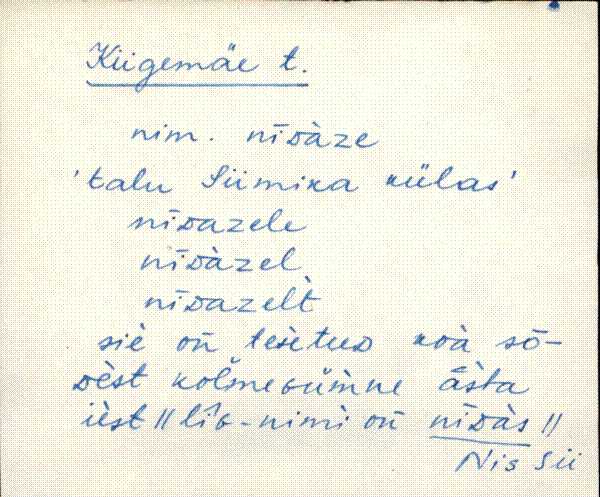 Kiigemäe t.
nim. nīᴅàze
'talu Siimika külas'
nīᴅazele
nīᴅàzel
nīᴅazelt̀
siè on̄ teisetuᴅ koà sō-
ᴅèst kolmeɢüm̀ne ās̀ta
ièst // līɢ-nimi on̄ nīᴅàs //
Nis Sii